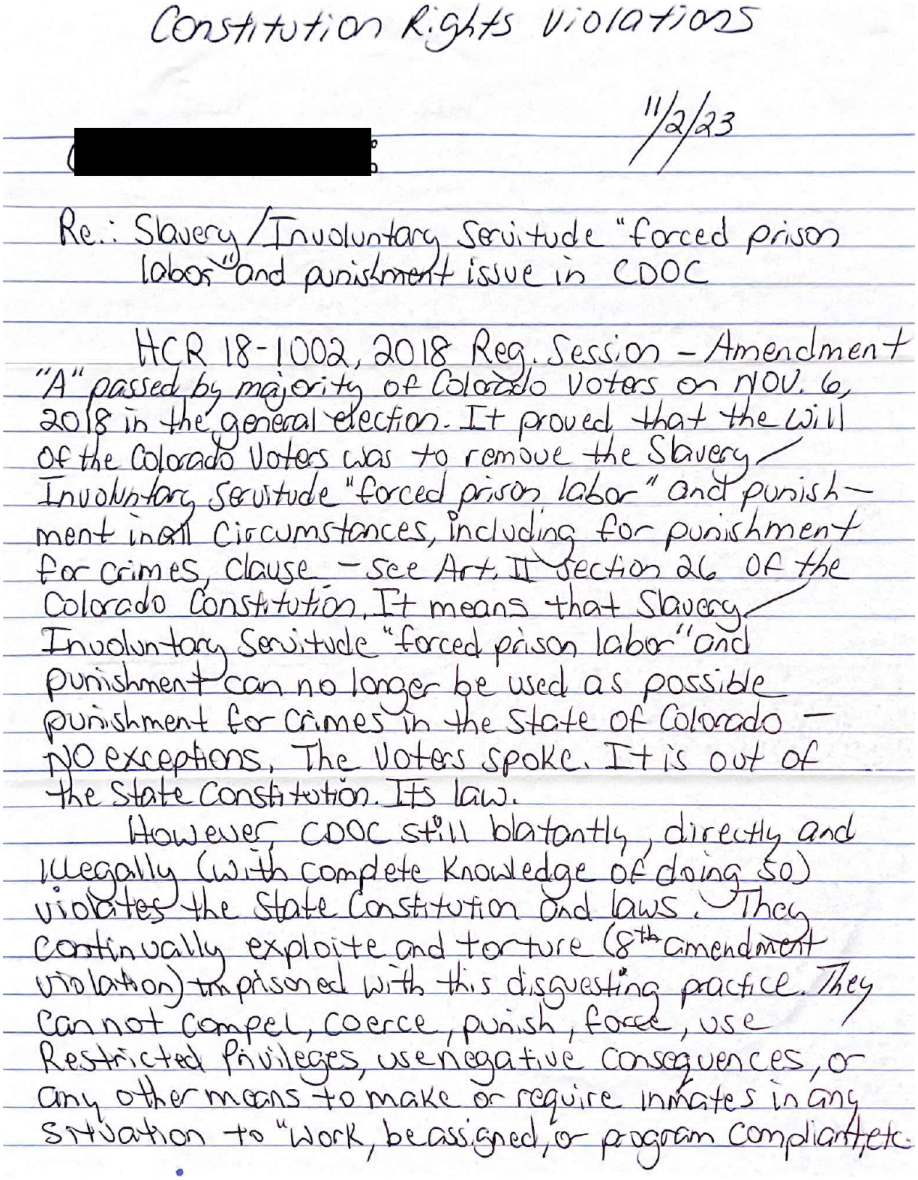 Constitution Rights Violations
11/2/23
Re.: Slavery/Involuntary Servitude "forced prison
labor" and punishment issue in CDOC
HCR 18-1002, 2018 Reg. Session - Amendment
"A" passed by majority of Colorado Voters on NOV. 6,
2018 in the general election. It proved that the will
of the Colorado Voters was to remove the Slavery/
Involuntary Servitude "forced prison labor" and punish-
ment in all Circumstances, including for punishment
for crimes, clause - see Art. II section 26 of the
Colorado Constitution. It means that Slavery/
Involuntary Servitude "forced prison labor" and
punishment can no longer be used as possible
punishment for crimes in the State of Colorado -
NO exceptions. The Voters spoke. It is out of
the State Constitution. Its law.
However, CDOC still blatantly, directly and
illegally (with complete knowledge of doing so)
violates the State Constitution and laws. They
continually exploite and torture (8th amendment
violation) imprisoned with this disguesting practice. They
can not compel, coerce, punish, force, use
Restricted Privileges, use negative consequences, or
any other means to make or require inmates in any
situation to "work, be assigned, or program compliant, etc.